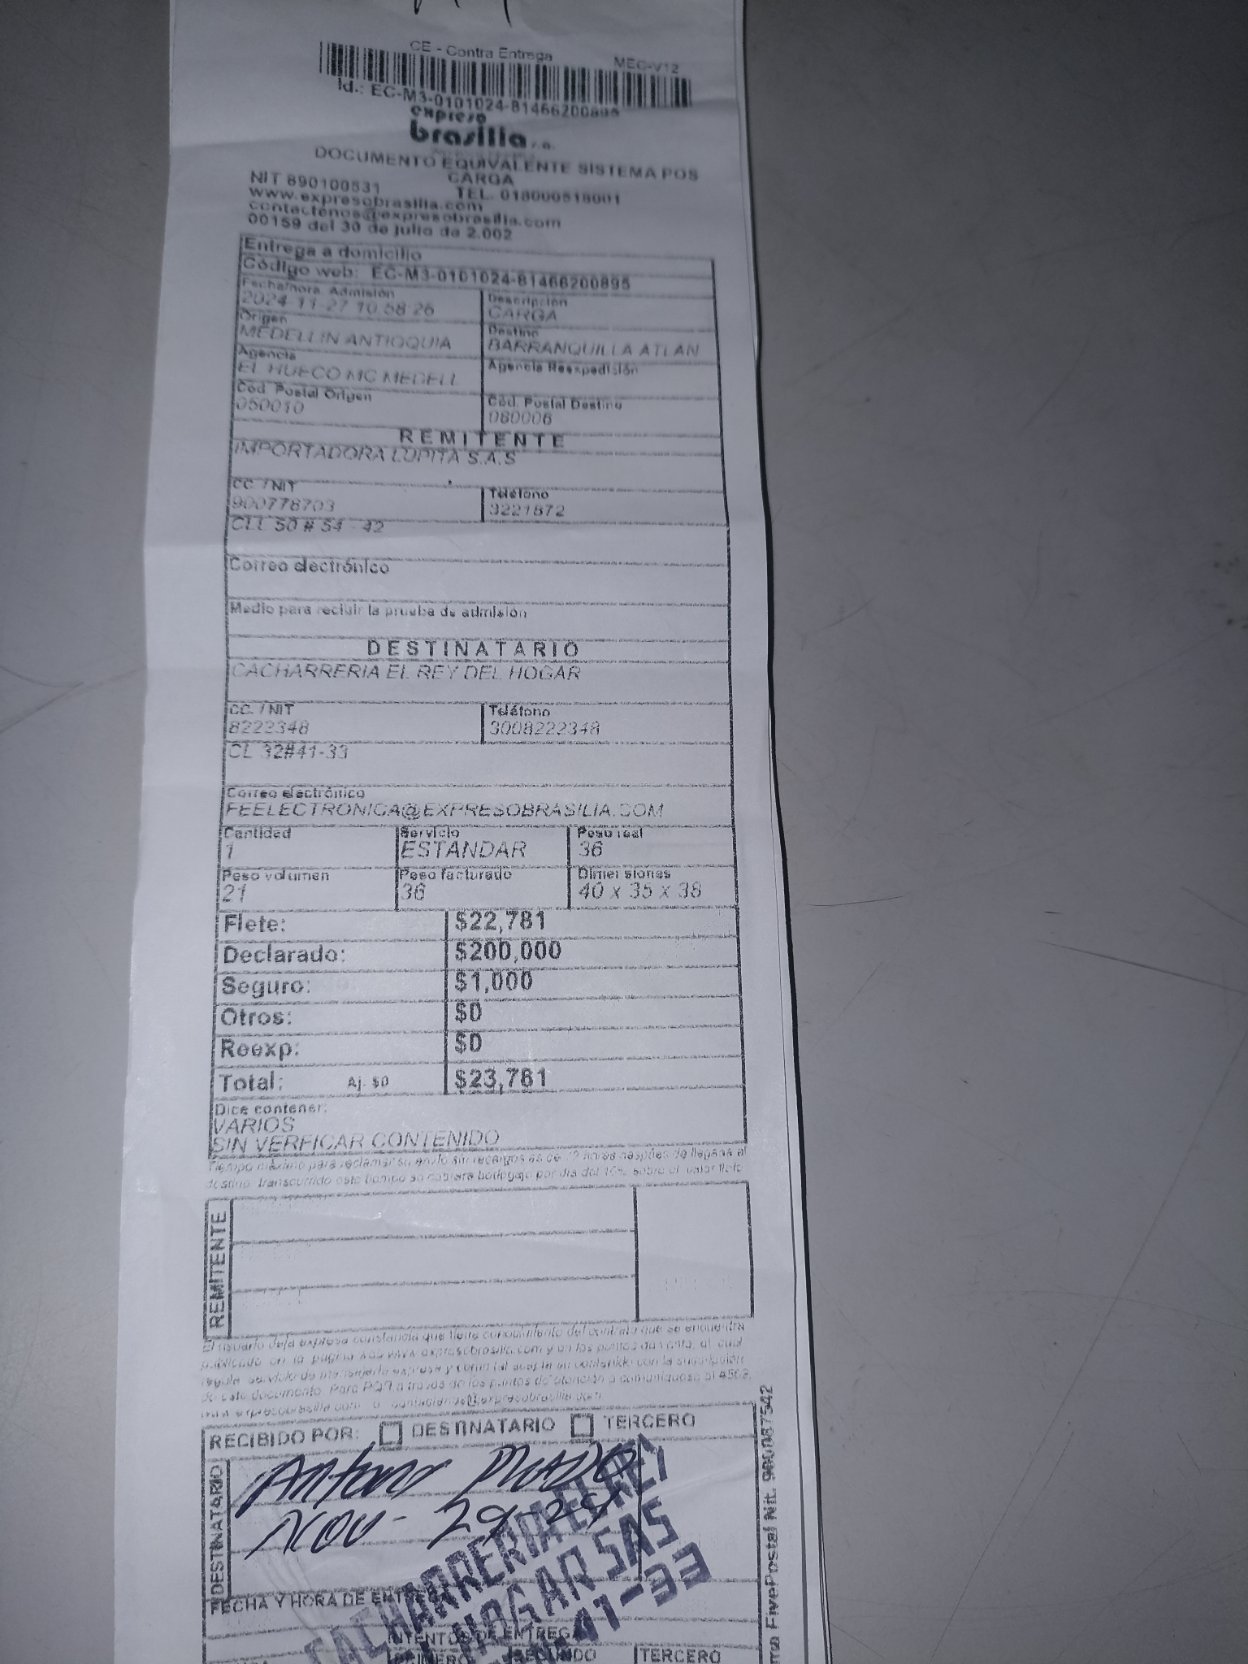 CE - Contra Entrega MEC-V12
Id.: EC-M3-0101024-81466200895
expreso
brasilia s.a.
DOCUMENTO EQUIVALENTE SISTEMA POS
CARGA
NIT 890100531 TEL. 018000518001
www.expresobrasilia.com
contactenos@expresobrasilia.com
00159 del 30 de julio de 2.002
Entrega a domicilio
Código web: EC-M3-0101024-81466200895
Fecha/hora Admisión Descripción
2024-11-27 10:58:26 CARGA
Origen Destino
MEDELLIN ANTIOQUIA BARRANQUILLA ATLAN
Agencia Agencia Reexpedición
EL HUECO MC MEDELL
Cód. Postal Origen Cód. Postal Destino
050010 080006
REMITENTE
IMPORTADORA LUPITA S.A.S
CC. / NIT Teléfono
900778703 3221872
CLL 50 # 54 - 42
Correo electrónico
Medio para recibir la prueba de admisión
DESTINATARIO
CACHARRERIA EL REY DEL HOGAR
CC. / NIT Teléfono
8222348 3008222348
CL 32#41-33
Correo electrónico
FEELECTRONICA@EXPRESOBRASILIA.COM
Cantidad Servicio Peso real
1 ESTANDAR 36
Peso volumen Peso facturado Dimensiones
21 36 40 x 35 x 38
Flete: $22,781
Declarado: $200,000
Seguro: $1,000
Otros: $0
Reexp: $0
Total: Aj. $0 $23,781
Dice contener:
VARIOS
SIN VERFICAR CONTENIDO
Tiempo máximo para reclamar su envío sin recargos es de 72 horas después de llegada al
destino, transcurrido este tiempo se cobrara bodegaje por día del 10% sobre el valor flete
REMITENTE
El usuario deja expresa constancia que tiene conocimiento del contrato que se encuentra
publicado en la página web www.expresobrasilia.com y en los puntos de venta, el cual
regula servicio de mensajería expresa y cuyo
de este documento. Para PQR a través de los puntos de atención o comuníquese al
www.expresobrasilia.com o contactenos@expresobrasilia.com
RECIBIDO POR: DESTINATARIO TERCERO
DESTINATARIO
Antonio
NOV - 29 24
CACHARRERIA EL REY
HOGAR SAS
41-33
FECHA Y HORA DE ENTREGA
INTENTOS DE ENTREGA
TERCERO
FivePostal Nit. 900087542